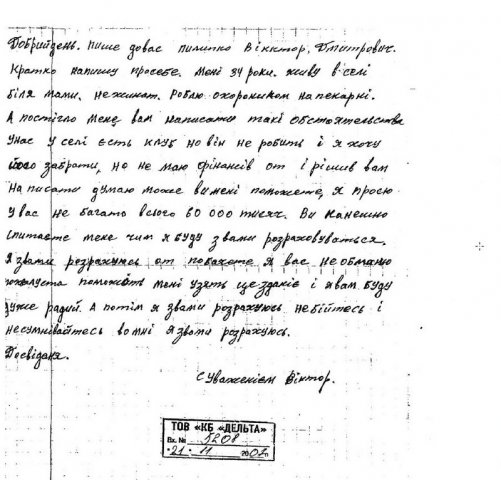 Добрийдень. пише довас пилипко Вікктор, Дмитрович.
Кратко напишу просебе. Мені 34 роки. живу в селі
біля мами. нежинат. Роблю охороником на пекарні.
А постігло мене вам написати такі обстоятельства
Унас у селі єсть клуб но він не робить і я хочу
його забрати, но не маю фінансів от і рішив вам
написати думаю може ви мені поможете, я прошу
у вас не багато всього 60 000 тисяч. Ви канешно
спитаєте мене чим я буду з вами розраховуваться.
Я звами розрахуюсь от побачете я вас не обманю
пожалуста поможіть мені узять це зданіє і я вам буду
дуже радий. А потім я звами розрахуюсь небійтесь і
несумнівайтесь вомні я звами розрахуюсь.
Досвіданя.
с Уваженієм Віктор.
ТОВ «КБ «ДЕЛЬТА»
Вх. № 5208
"21" 11 2007р.